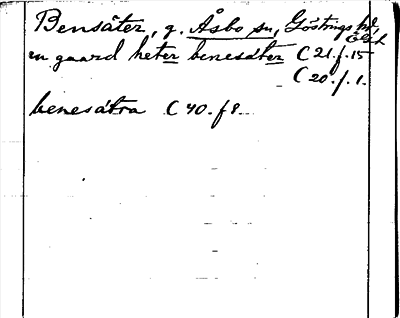 Bensäter, g. Åsbo sn, Göstrings hd,
Ögtl
en gaard heter benesäter C 21. f. 15
C 20. f. 1.
benesätra C 40. f 8.